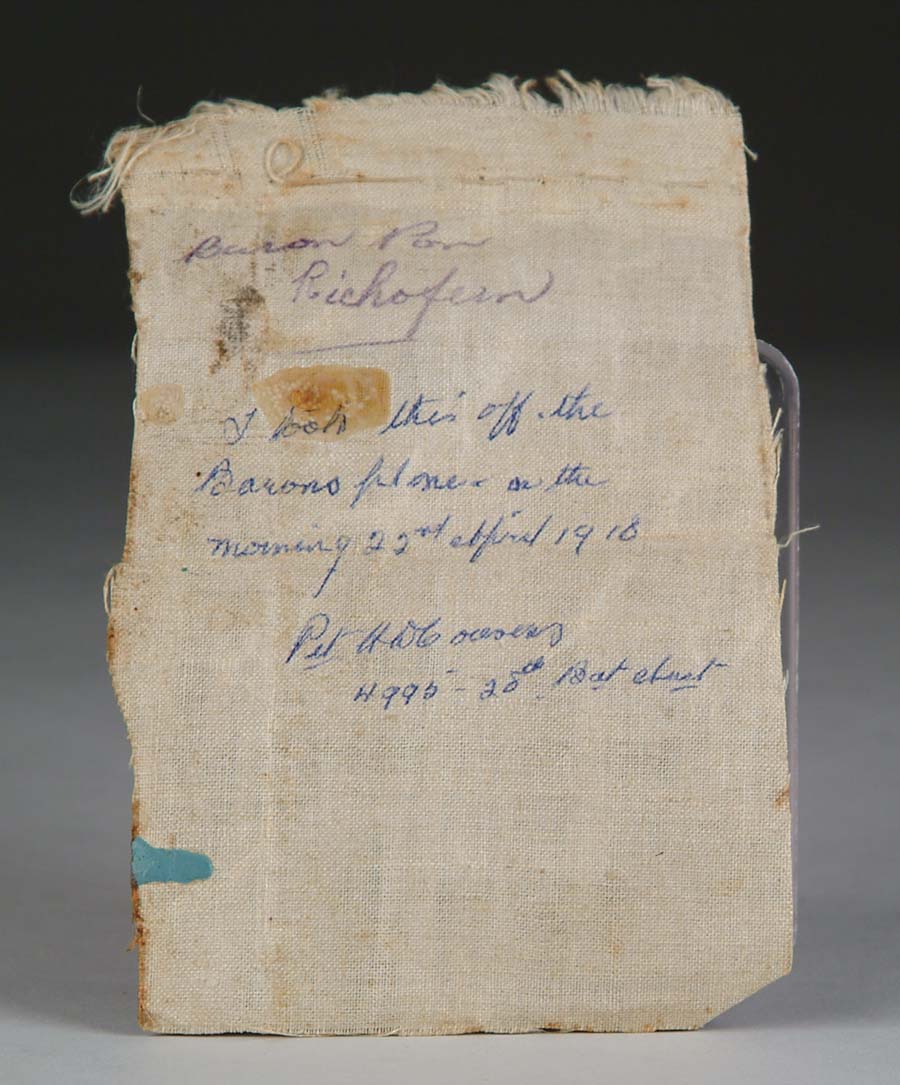 Baron Von
Richofern
I took this off the
Barons plane - on the
morning 22nd April 1918
Pvt H W Cravens
4995 - 28th Bat Aust